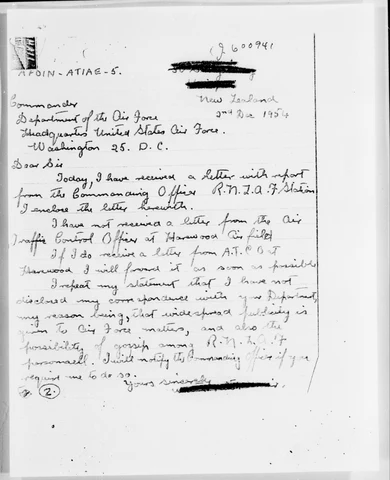 J 600941
AFOIN-ATIAE-5.
New Zealand
2nd Dec 1954
Commander
Department of the Air Force
Headquarters United States Air Force.
Washington 25. D.C.
Dear Sir
Today, I have received a letter with report
from the Commanding Officer R.N.Z.A.F Station
I enclose the letter herewith.
I have not received a letter from the Air
Traffic Control Officer at Harewood Airfield
If I do receive a letter from A.T.C. at
Harewood I will forward it as soon as possible
I repeat my statement that I have not
disclosed my correspondence with your Department,
my reason being, that widespread publicity is
given to Air Force matters, and also the
possibility of gossip among R.N.Z.A.F
personnell. I will notify the Commanding Officer if you
require me to do so.
Yours sincerely
2.